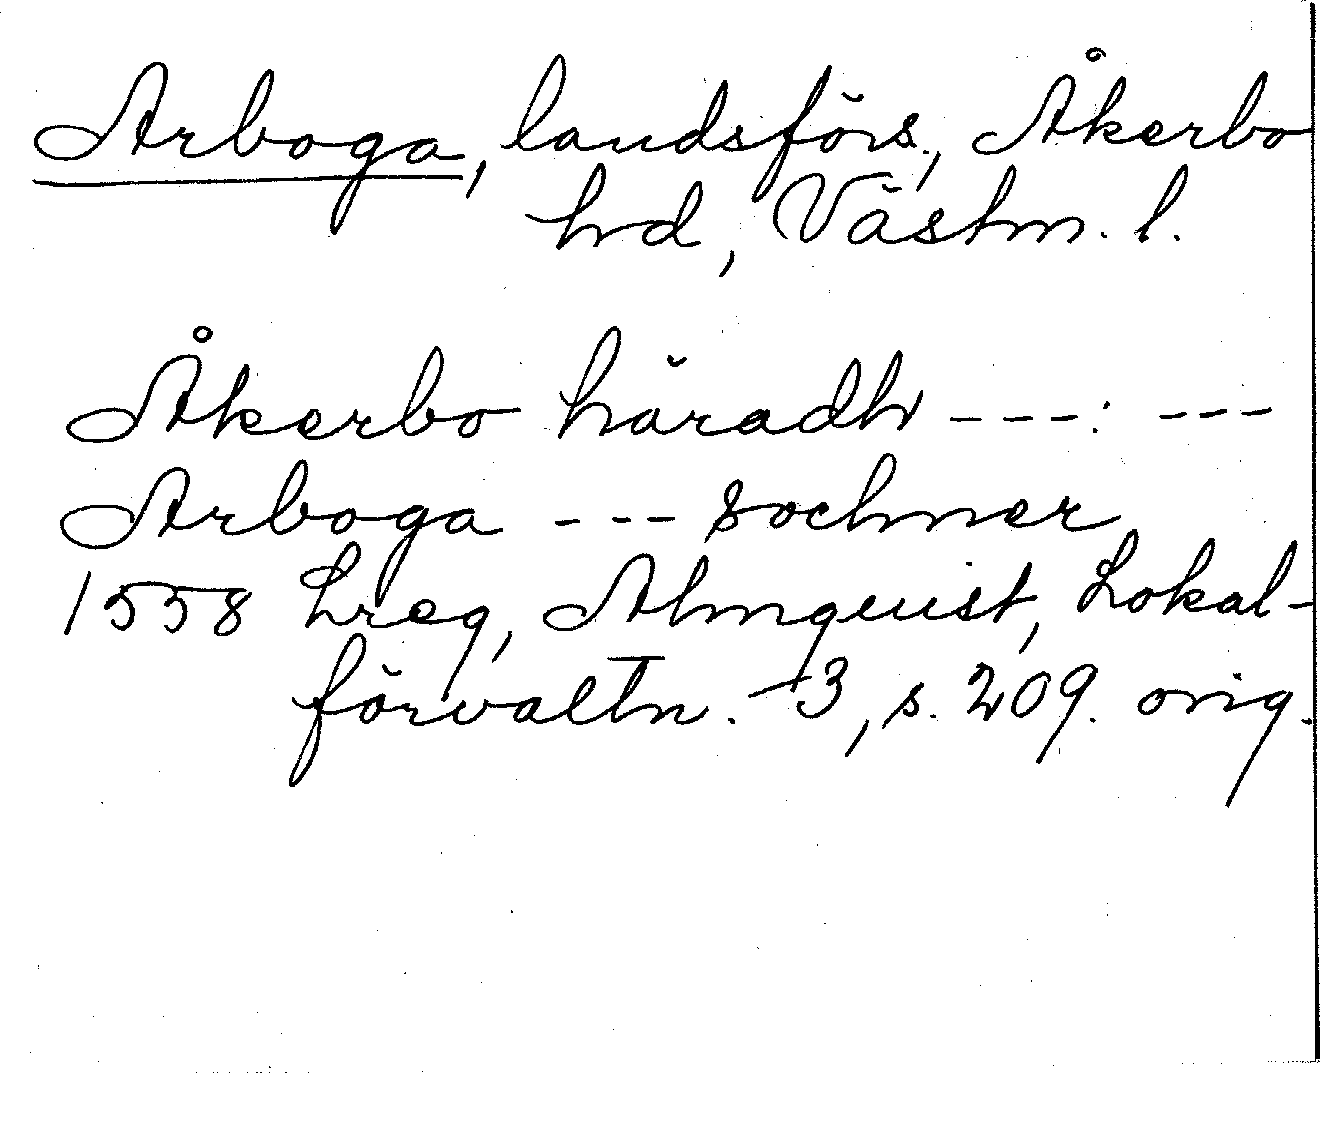 Arboga, landsförs., Åkerbo
hrd, Västm. l.
Åkerbo häradh ---: ---
Arboga --- sochner
1558 Lreg, Almquist, Lokal-
förvaltn. 3, s. 209. orig.